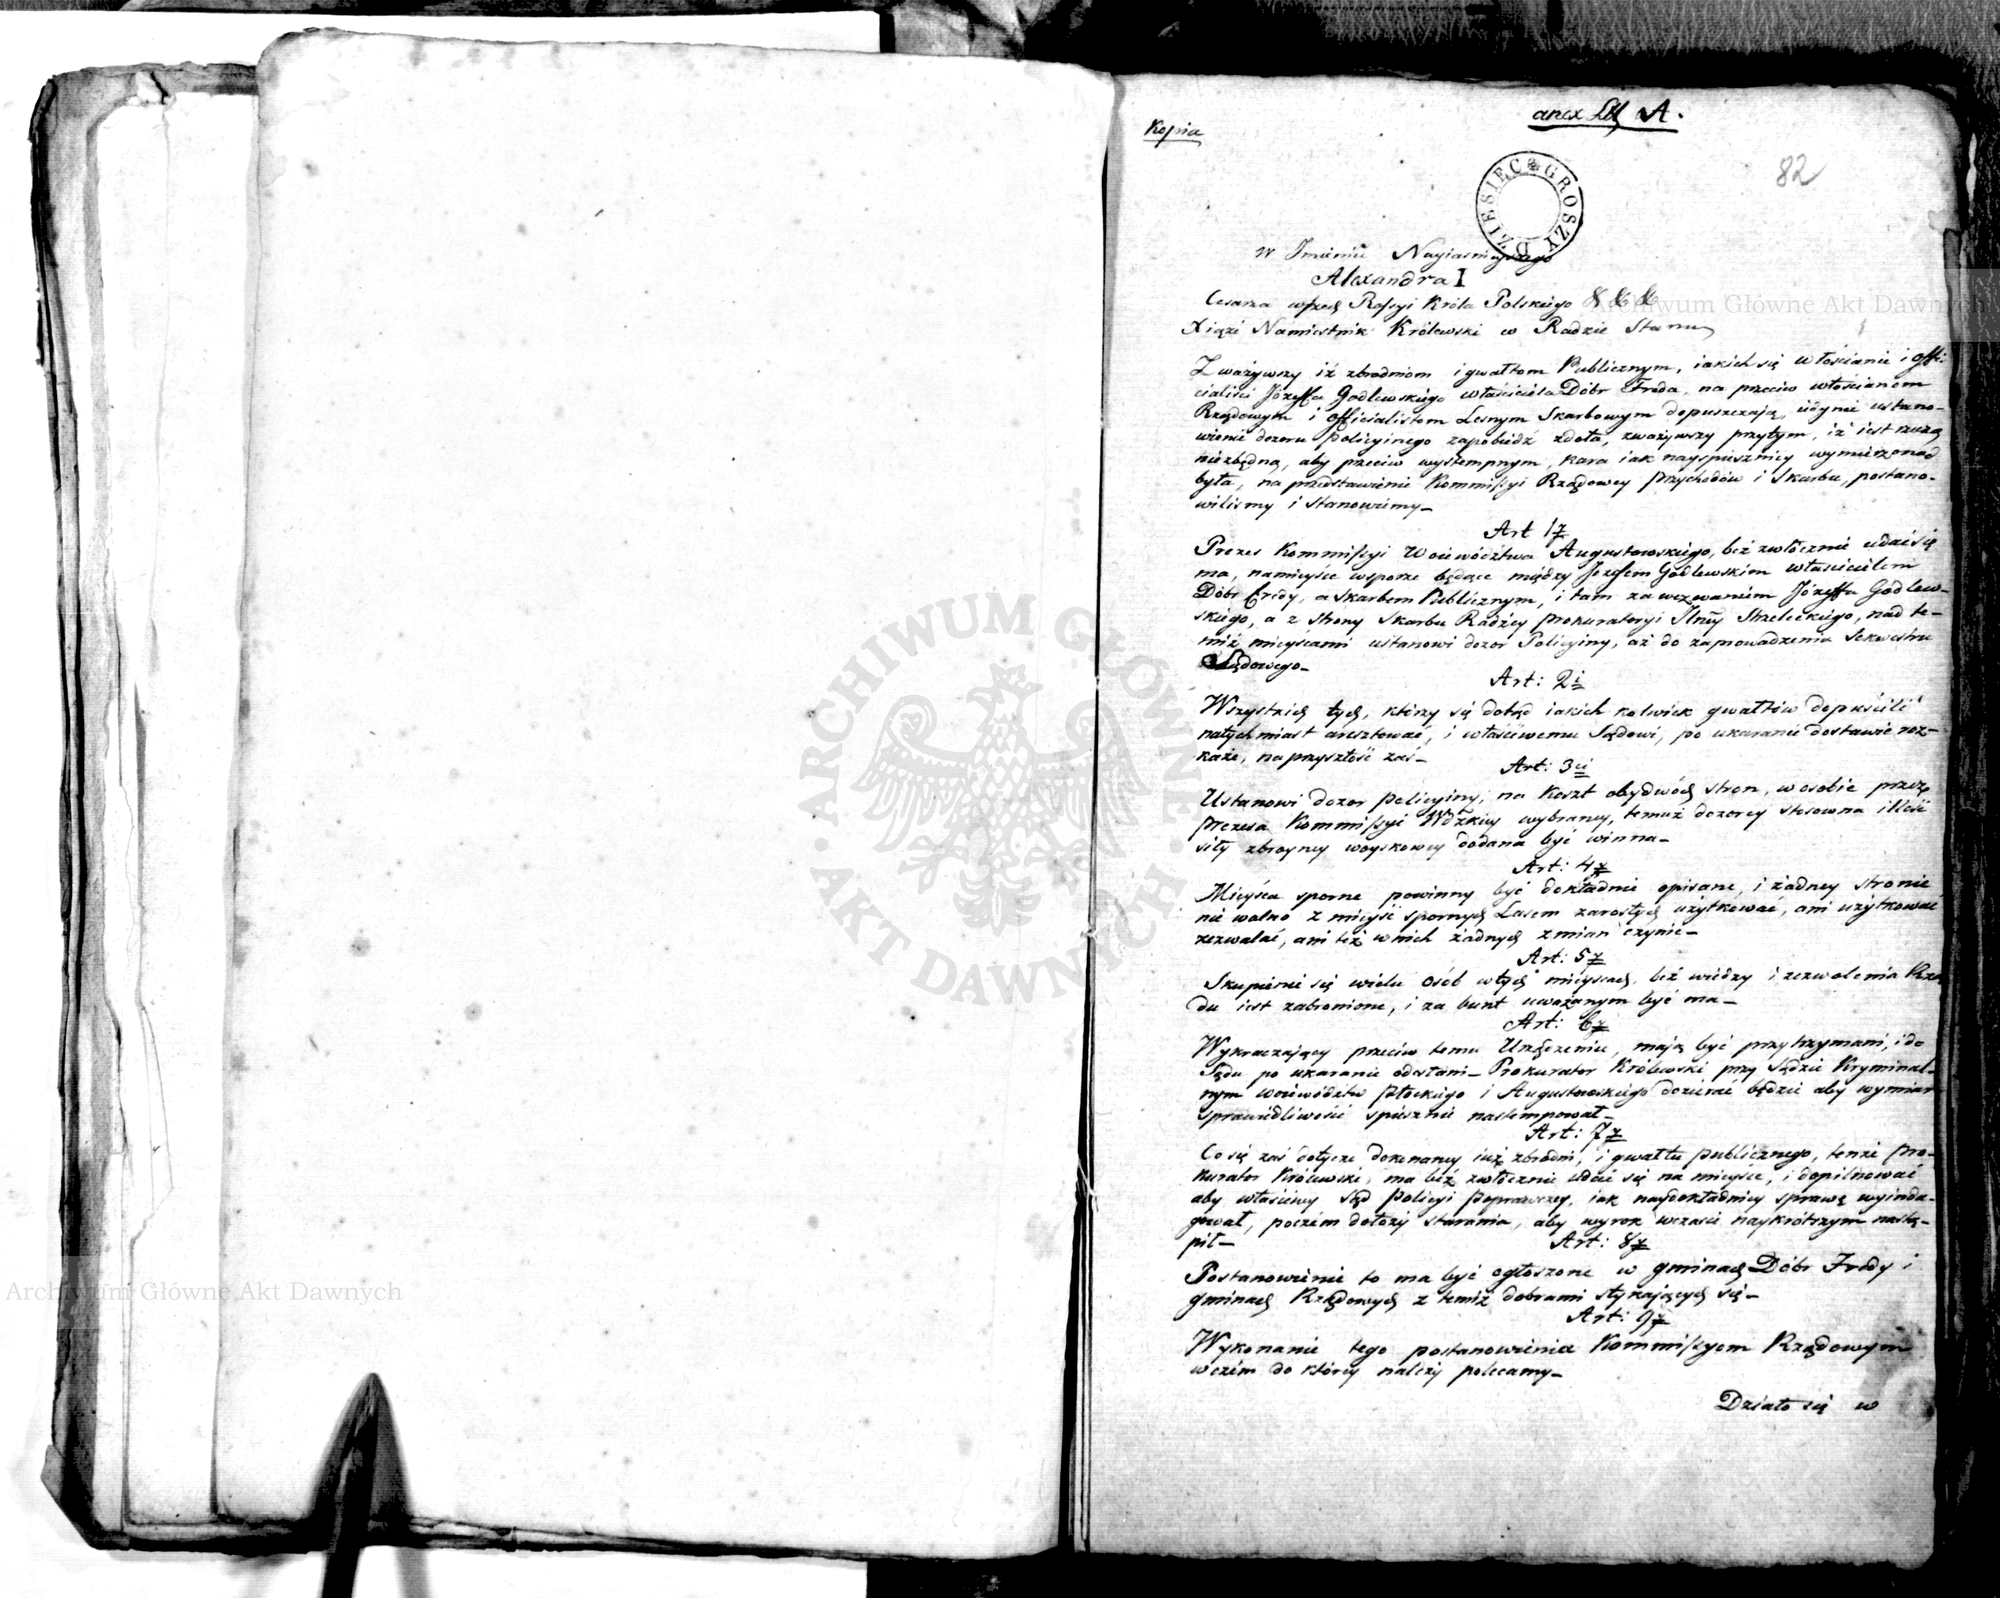 Kopia
anex Litt A.
82
DZIESIĘC GROSZY
W Imieniu Nayiaśnieyszego
Alexandra I
Cesarza wszech Rossyi Króla Polskiego & & &
Xiąże Namiestnik Królewski w Radzie Stanu
Zważywszy iż zbrodniom i gwałtom Publicznym, iakich się włościanie i offi-
cialiści Józeffa Godlewskiego właściciela Dóbr Freda, na przeciw włościanom
Rządowym i officialistom Lesnym Skarbowym dopuszczają, iedynie ustano-
wienie dozoru policyinego zapobiedz zdoła, zważywszy przytym, iż iest rzeczą
niezbędną, aby przeciw występnym, kara iak nayspieszniey wymierzoną
była, na przedstawienie Kommissyi Rządowey Przychodów i Skarbu, postano-
wiliśmy i stanowiemy_
Art 1y
Prezes Kommissyi Woiewództwa Augustowskiego, beż zwłocznie udać się
ma, na mieysce w sporze będące między Jozefem Godlewskim właścicielem
Dóbr Fredy, a Skarbem Publicznym, i tam za wezwaniem Józeffa Godlew-
skiego, a z strony Skarbu Radźcy Prokuratoryi Jlney Strzeleckiego, nad te-
miż mieyscami ustanowi dozor Policyiny, aż do zaprowadzenia Sekwestru
Sądowego_
Art: 2i
Wszystkich tych, którzy się dotąd iakich kolwiek gwałtów dopuścili
natychmiast aresztować, i właściwemu Sądowi, po ukaranie dostawić roz-
każe, na przyszłość zaś_
Art: 3ci
Ustanowi dozor policyiny, na koszt obydwóch stron, w osobie przez
Prezesa Kommissyi Wdzkiey wybraney, temuż dozorcy stosowna illość
siły zbroyney woyskowey dodana być winna_
Art: 4y
Mieysca sporne powinny być dokładnie opisane, i żadney stronie
nie wolno z mieysc spornych Lasem zarosłych użytkować, ani użytkować
zezwalać, ani też w nich żadnych zmian czynić_
Art: 5y
Skupienie się wielu osób w tych mieyscach, beż wiedzy i zezwolenia Rzą
du iest zabronione, i za bunt uważanym być ma_
Art: 6y
Wykraczaiący przeciw temu Urządzeniu, maią być przytrzymani, i do
Sądu po ukaranie odesłani_ Prokurator Królewski przy Sądzie Kryminal-
nym woiewództw Płockiego i Augustowskiego dozierać będzie aby wymiar
sprawiedliwości spiesznie nastempował_
Art: 7y
Co się zaś dotycze dokonaney iuż zbrodni, i gwałtu publicznego, tenże Pro-
kurator Królewski, ma beż zwłocznie udać się na mieysce, i dopilnować
aby właściwy Sąd Policyi Poprawczey, iak naydokładniey sprawę wyinda-
gował, poczém dołoży starania, aby wyrok w czasie naykrótszym nastą-
pił_
Art: 8y
Postanowienie to ma być ogłoszone w gminach Dóbr Fredy i
gminach Rządowych z temiż dobrami stykaiących się_
Art: 9y
Wykonanie tego postanowienia Kommissyom Rządowym
w czém do którey należy polecamy_
Działo się w
ARCHIWUM GŁÓWNE AKT DAWNYCH
Archiwum Główne Akt Dawnych
Archiwum Główne Akt Dawnych